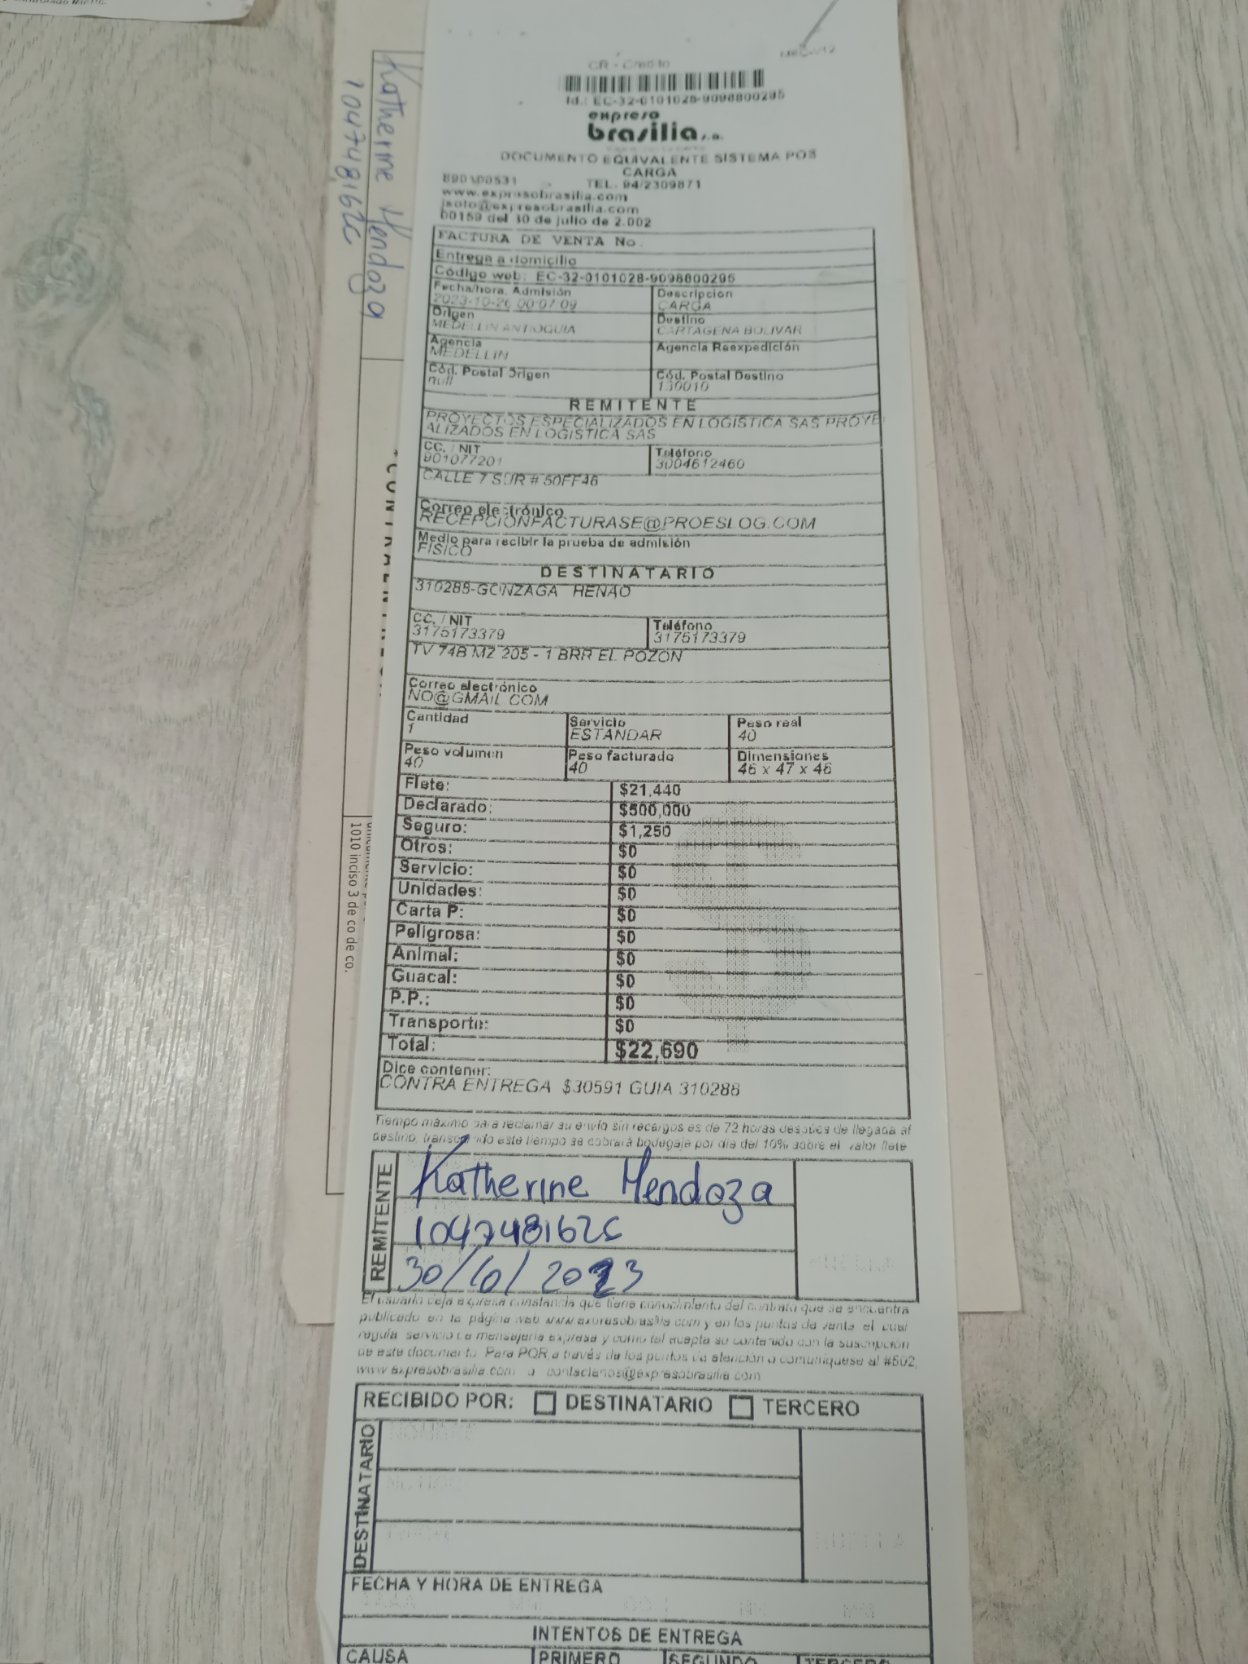 CR - Credito
Id.: EC-32-0101028-9098800295
expreso
brasilia s.a.
DOCUMENTO EQUIVALENTE SISTEMA POS
CARGA
TEL. 94/2309871
www.expresobrasilia.com
jsoto@expresobrasilia.com
00159 del 30 de julio de 2.002
FACTURA DE VENTA No.
Entrega a domicilio
Código web: EC-32-0101028-9098800295
Fecha/hora. Admisión
2023-10-26 00:07:09
Descripción
CARGA
Origen
MEDELLIN ANTIOQUIA
Destino
CARTAGENA BOLIVAR
Agencia
MEDELLIN
Agencia Reexpedición
Cód. Postal Origen
null
Cód. Postal Destino
130010
REMITENTE
PROYECTOS ESPECIALIZADOS EN LOGISTICA SAS PROYE
ALIZADOS EN LOGISTICA SAS
CC. / NIT
901077201
Teléfono
3004612460
CALLE 7 SUR # 50FF46
Correo electrónico
RECEPCIONFACTURASE@PROESLOG.COM
Medio para recibir la prueba de admisión
FISICO
DESTINATARIO
310288-GONZAGA HENAO
CC. / NIT
3175173379
Teléfono
3175173379
TV 74B MZ 205 - 1 BRR EL POZON
Correo electrónico
NO@GMAIL.COM
Cantidad
1
Servicio
ESTANDAR
Peso real
40
Peso volumen
40
Peso facturado
40
Dimensiones
46 x 47 x 46
Flete: $21,440
Declarado: $500,000
Seguro: $1,250
Otros: $0
Servicio: $0
Unidades: $0
Carta P: $0
Peligrosa: $0
Animal: $0
Guacal: $0
P.P.: $0
Transporte: $0
Total: $22,690
Dice contener:
CONTRA ENTREGA $30591 GUIA 310288
Tiempo máximo para reclamar su envío sin recargos es de 72 horas después de llegada al
destino, transcurrido este tiempo se cobrará bodegaje por día del 10% sobre el valor flete
REMITENTE
Katherine Mendoza
1047481626
30/10/2023
El usuario deja expresa constancia que tiene conocimiento del contrato que se encuentra
publicado en la página web www.expresobrasilia.com y en los puntos de venta el cual
regula servicio de mensajería expresa y como tal acepta su contenido con la suscripción
de este documento. Para PQR a través de los puntos de atención o comuníquese al #502,
www.expresobrasilia.com o contactenos@expresobrasilia.com
RECIBIDO POR: DESTINATARIO TERCERO
DESTINATARIO
FECHA Y HORA DE ENTREGA
INTENTOS DE ENTREGA
CAUSA PRIMERO SEGUNDO TERCERO
Katherine Mendoza
1047481626
1010 inciso 3 de co de co.